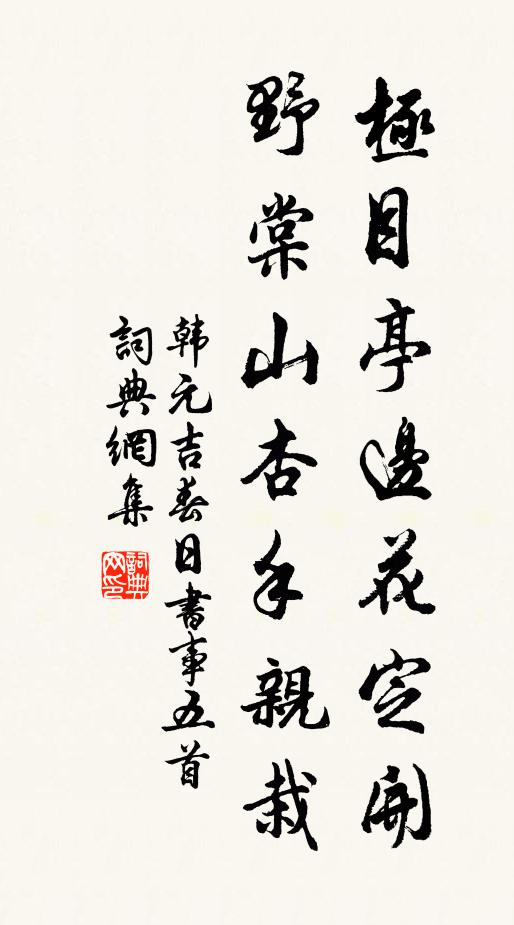 極目亭邊花定開
野棠山杏手親栽
韩元吉春日書事五首
詞典網集
詞典网印